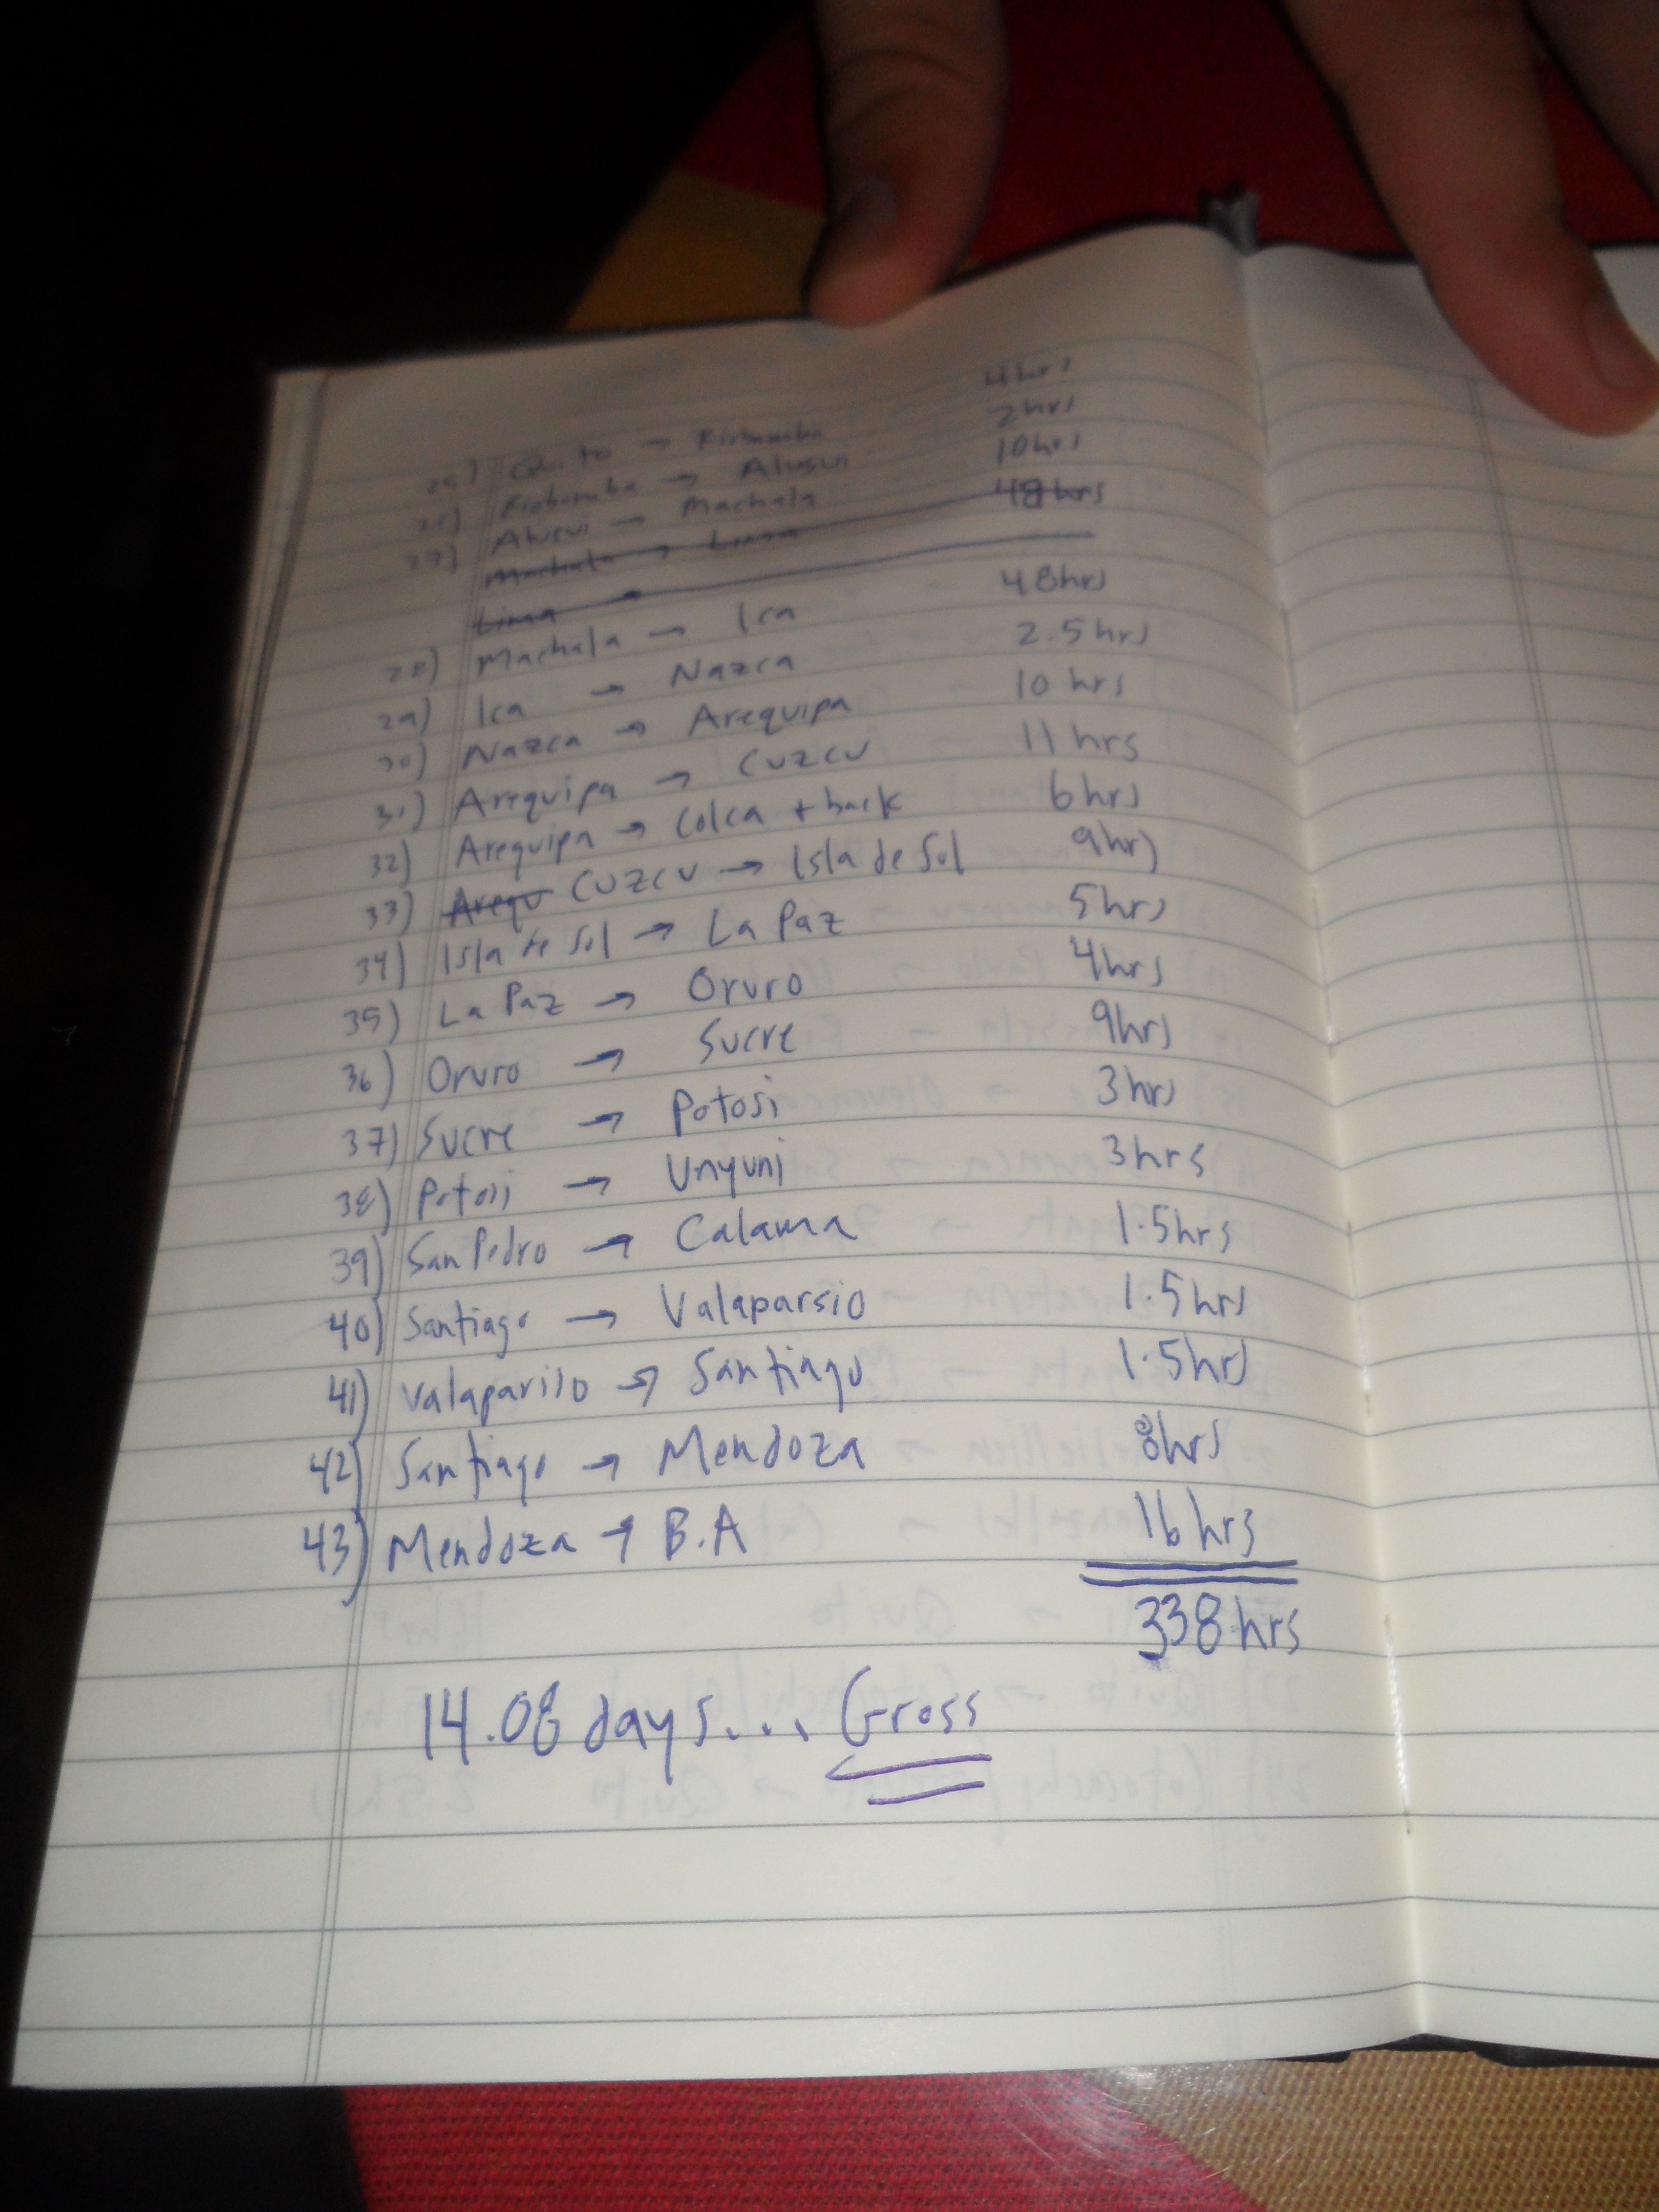 25) Quito → Riobamba 4hrs
26) Riobamba → Alausi 2hrs
27) Alausi → Machala 10hrs
Machala → Lima 48hrs
Lima →
28) Machala → Ica 48hrs
29) Ica → Nazca 2.5hrs
30) Nazca → Arequipa 10 hrs
31) Arequipa → Cuzcu 11 hrs
32) Arequipa → Colca + back 6hrs
33) Arequ Cuzcu → Isla de Sol 9hr)
34) Isla de Sol → La Paz 5hrs
35) La Paz → Oruro 4hrs
36) Oruro → Sucre 9hrs
37) Sucre → Potosi 3hrs
38) Potosi → Unyuni 3hrs
39) San Pedro → Calama 1.5hrs
40) Santiago → Valaparsio 1.5hrs
41) Valapariso → Santiago 1.5hrs
42) Santiago → Mendoza 8hrs
43) Mendoza → B.A 16 hrs
338 hrs
14.08 days... Gross